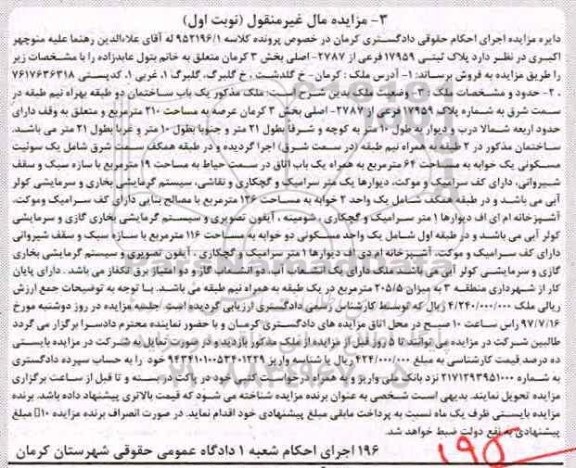 ۳- مزایده مال غیرمنقول (نوبت اول)
دایره مزایده اجرای احکام حقوقی دادگستری کرمان در خصوص پرونده کلاسه ۹۵۲۱۹۶/۱ له آقای علاءالدین رهنما علیه منوچهر
اکبری در نظر دارد پلاک ثبتی ۱۷۹۵۹ فرعی از ۲۷۸۷- اصلی بخش ۳ کرمان متعلق به خانم بتول عابدزاده را با مشخصات زیر
را طریق مزایده به فروش برساند: ۱- آدرس ملک : کرمان- خ گلدشت ، خ گلبرگ، گلبرگ ۱، غربی ۱، کدپستی ۷۶۱۷۶۳۶۳۱۸
. ۲- حدود و مشخصات ملک : ۳- وضعیت ملک بدین شرح است: ملک مذکور یک باب ساختمان دو طبقه بهراه نیم طبقه در
سمت شرق به شماره پلاک ۱۷۹۵۹ فرعی از ۲۷۸۷- اصلی بخش ۳ کرمان عرصه به مساحت ۲۱۰ مترمربع و متعلق به وقف دارای
حدود اربعه شمالا درب و دیوار به طول ۱۰ متر به کوچه و شرقا بطول ۲۱ متر و جنوبا بطول ۱۰ متر و غربا بطول ۲۱ متر می باشد.
ساختمان مذکور در ۲ طبقه به همراه نیم طبقه (در سمت شرق) اجرا گردیده و در طبقه همکف سمت شرق شامل یک سوئیت
مسکونی یک خوابه به مساحت ۶۴ مترمربع به همراه یک باب اتاق در سمت حیاط به مساحت ۱۹ مترمربع با سازه سبک و سقف
شیروانی، دارای کف سرامیک و موکت، دیوارها یک متر سرامیک و گچکاری و نقاشی، سیستم گرمایشی بخاری و سرمایشی کولر
آبی می باشد و در طبقه همکف شامل یک واحد ۲ خوابه به مساحت ۱۲۶ مترمربع با مصالح بنایی دارای کف سرامیک وموکت،
آشپزخانه ام ای اف دیوارها ۱ متر سرامیک و گچکاری ، شومینه ، آیفون تصویری و سیستم گرمایشی بخاری گازی و سرمایشی
کولر آبی می باشد و در طبقه اول شامل یک واحد مسکونی دو خوابه به مساحت ۱۱۶ مترمربع با سازه سبک و سقف شیروانی
دارای کف سرامیک و موکت، آشپزخانه ام دی اف دیوارها ۱ متر سرامیک و گچکاری ، آیفون تصویری و سیستم گرمایشی بخاری
گازی و سرمایشی کولر آبی می باشد. ملک دارای یک انشعاب آب، دو انشعاب گاز و دو امتیاز برق تکفاز می باشد . دارای پایان
کار از شهرداری منطقه ۳ به میزان ۲۰۵/۵ مترمربع در یک طبقه به همراه نیم طبقه می باشد. با توجه به توضیحات جمع ارزش
ریالی ملک ۴/۲۴۰/۰۰۰/۰۰۰ ریال که توسط کارشناس رسمی دادگستری ارزیابی گردیده است. جلسه مزایده در روز دوشنبه مورخ
۹۷/۷/۱۶ راس ساعت ۱۰ صبح در محل اتاق مزایده های دادگستری کرمان و با حضور نماینده محترم دادسرا برگزار می گردد
طالبین شرکت در مزایده می توانند تا ۵ روز قبل از مزایده از ملک مذکور بازدید و در صورت تمایل به شرکت در مزایده بایستی
ده درصد قیمت کارشناسی به مبلغ ۴۲۴/۰۰۰/۰۰۰ ریال با شناسه واریز ۹۴۳۴۱۰۱۰۰۵۳۴۰۱۲۲۹ خود را به حساب سپرده دادگستری
به شماره ۲۱۷۱۲۹۳۹۵۱۰۰۰ نزد بانک ملی واریز و به همراه درخواست کتبی خود در پاکت دربسته و تا قبل از ساعت برگزاری
مزایده تحویل نمایند. بدیهی است شخصی به عنوان برنده مزایده شناخته می شود که قیمت بالاتری پیشنهاد داده باشد. برنده
مزایده بایستی ظرف یک ماه نسبت به پرداخت مابقی مبلغ پیشنهادی خود اقدام نماید. در صورت انصراف برنده مزایده ۱۰٪ مبلغ
پیشنهادی به نفع دولت ضبط خواهد شد.
۱۹۶ اجرای احکام شعبه ۱ دادگاه عمومی حقوقی شهرستان کرمان